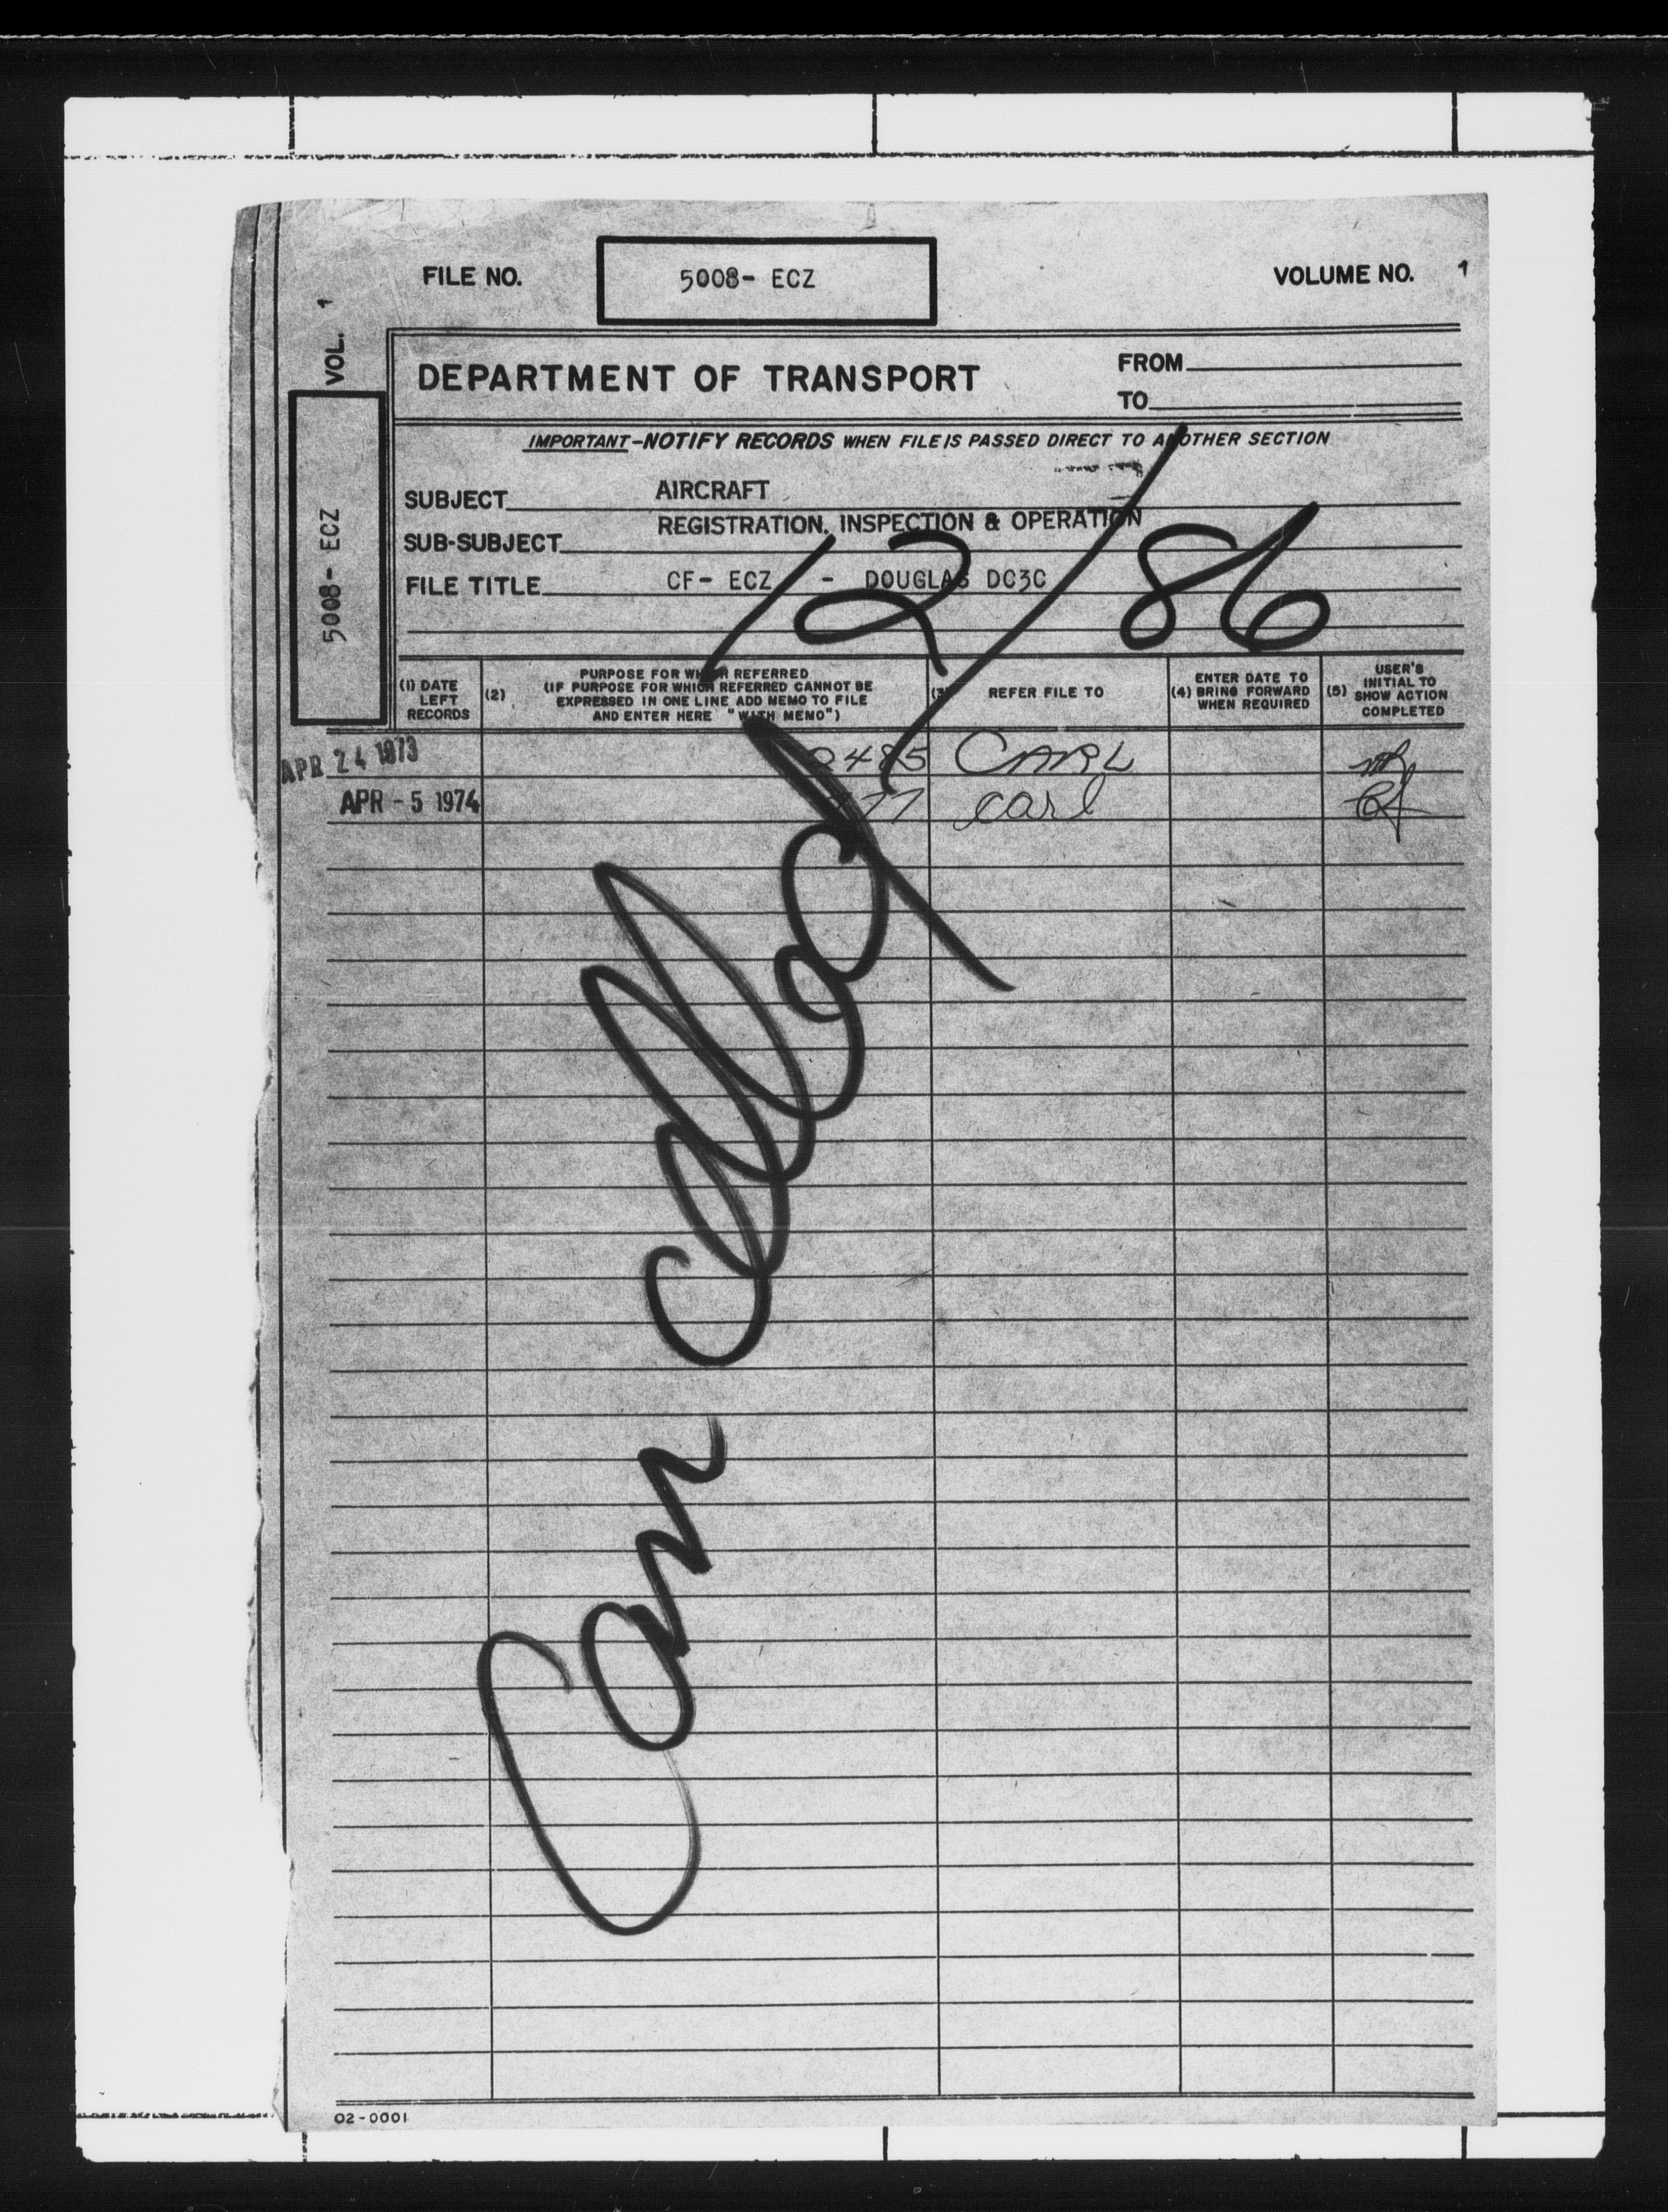 FILE NO. 5008- ECZ VOLUME NO. 1
VOL. 1
5008- ECZ
DEPARTMENT OF TRANSPORT
FROM
TO
IMPORTANT-NOTIFY RECORDS WHEN FILE IS PASSED DIRECT TO ANOTHER SECTION
SUBJECT AIRCRAFT
SUB-SUBJECT REGISTRATION, INSPECTION & OPERATION
FILE TITLE CF- ECZ - DOUGLAS DC3C
(1) DATE
LEFT
RECORDS
(2) PURPOSE FOR WHICH REFERRED
(IF PURPOSE FOR WHICH REFERRED CANNOT BE
EXPRESSED IN ONE LINE ADD MEMO TO FILE
AND ENTER HERE "WITH MEMO")
(3) REFER FILE TO
(4) ENTER DATE TO
BRING FORWARD
WHEN REQUIRED
(5) USER'S
INITIAL TO
SHOW ACTION
COMPLETED
APR 24 1973 CARL
APR - 5 1974 Carl
Cancelled
1/2/86
02-0001